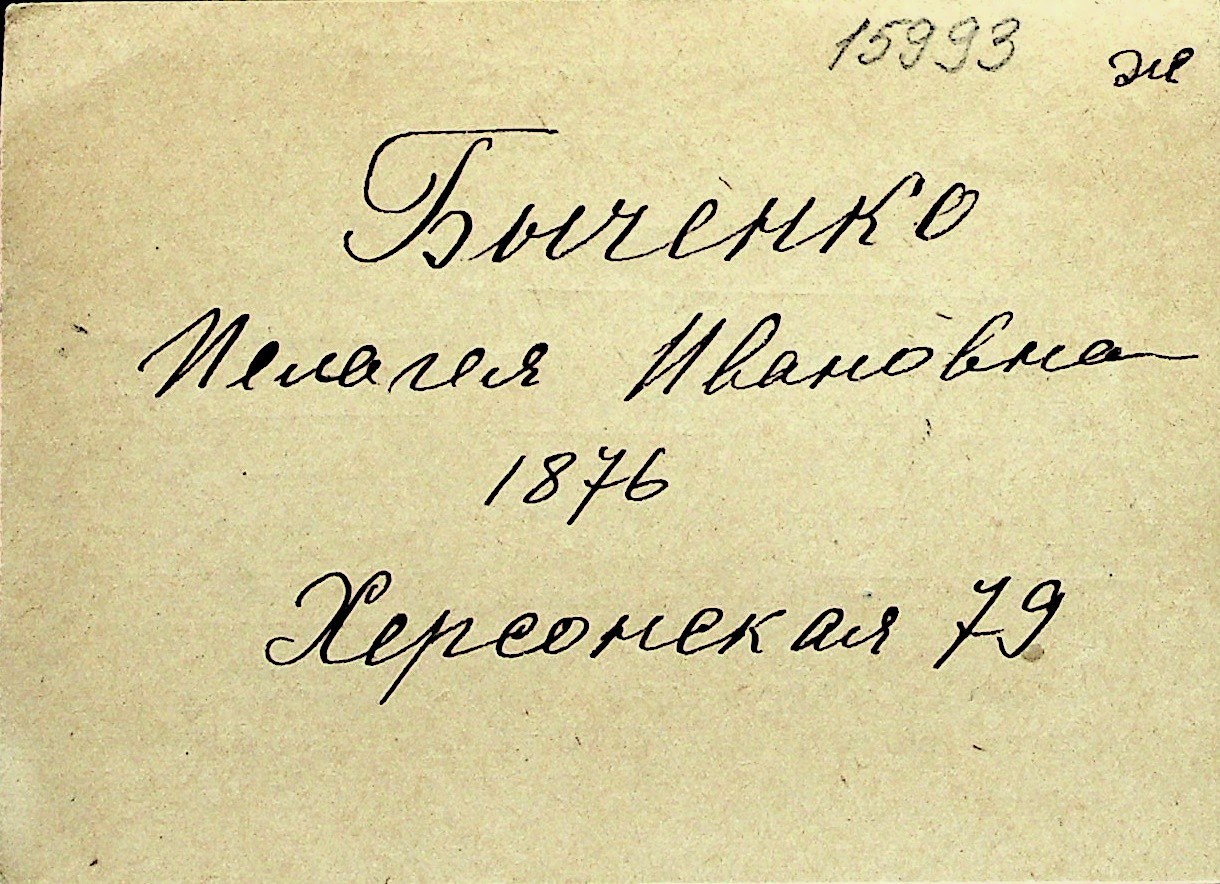 15993 ж
Быченко
Пелагея Ивановна
1876
Херсонская 79